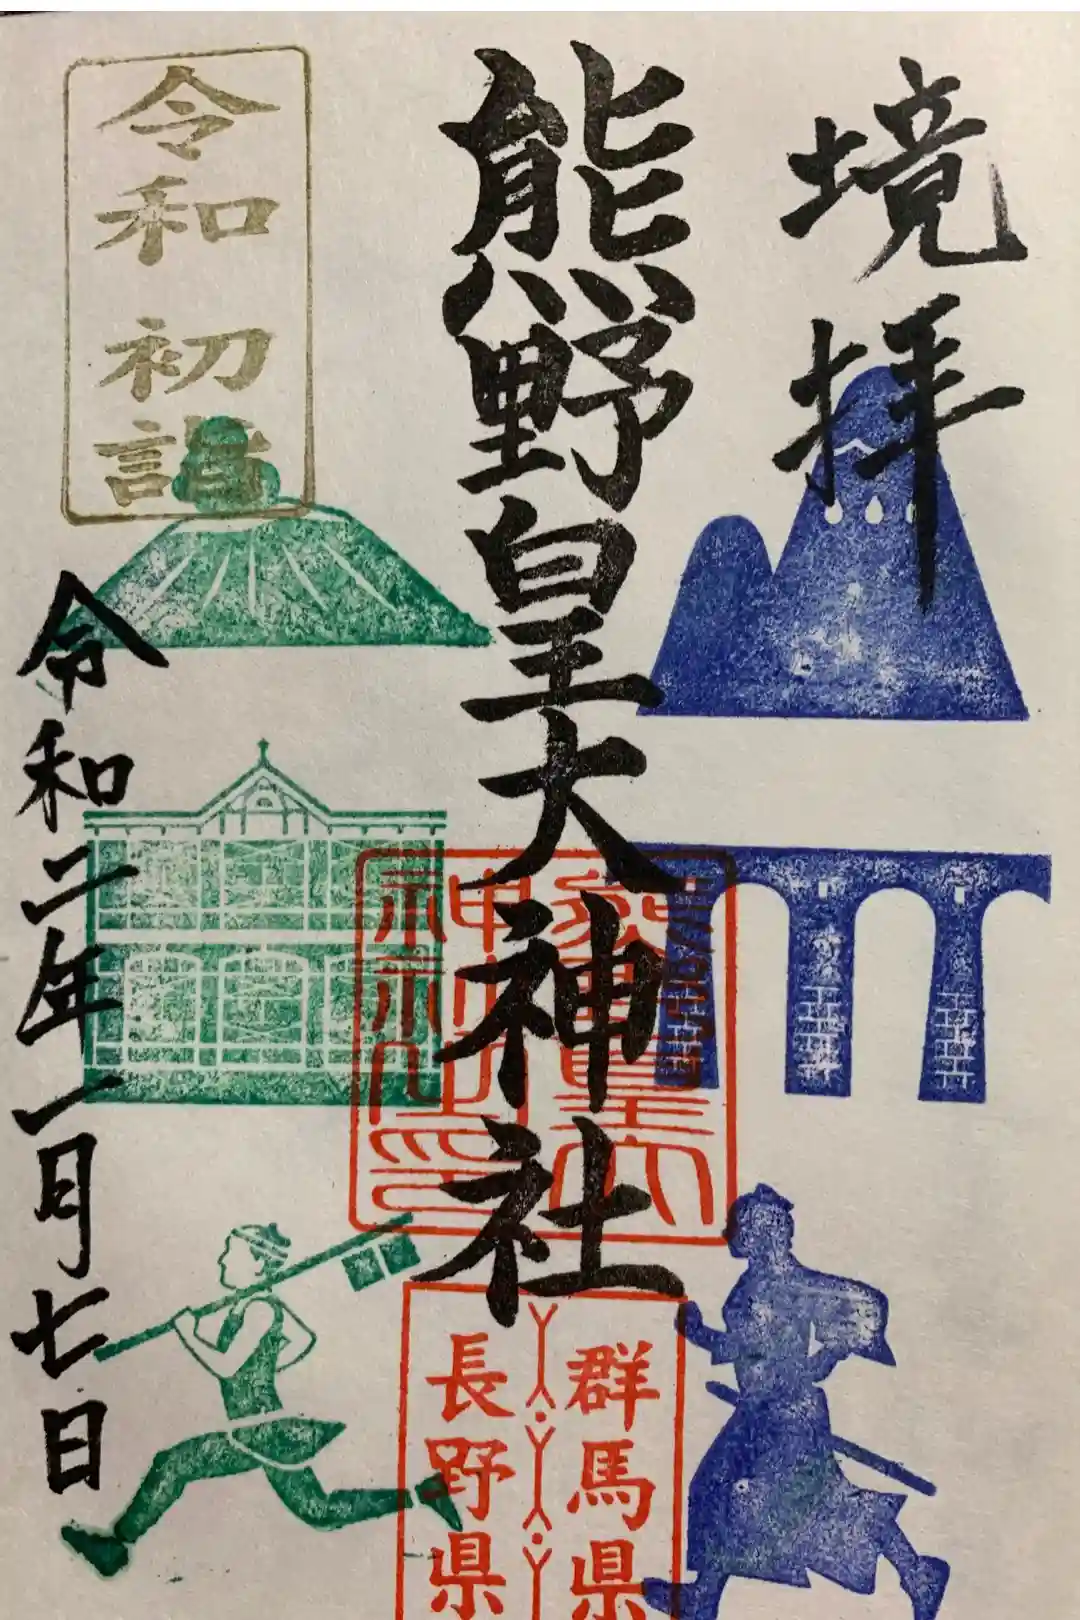 境拝
熊野皇大神社
令和初詣
令和二年一月七日
群馬県
長野県